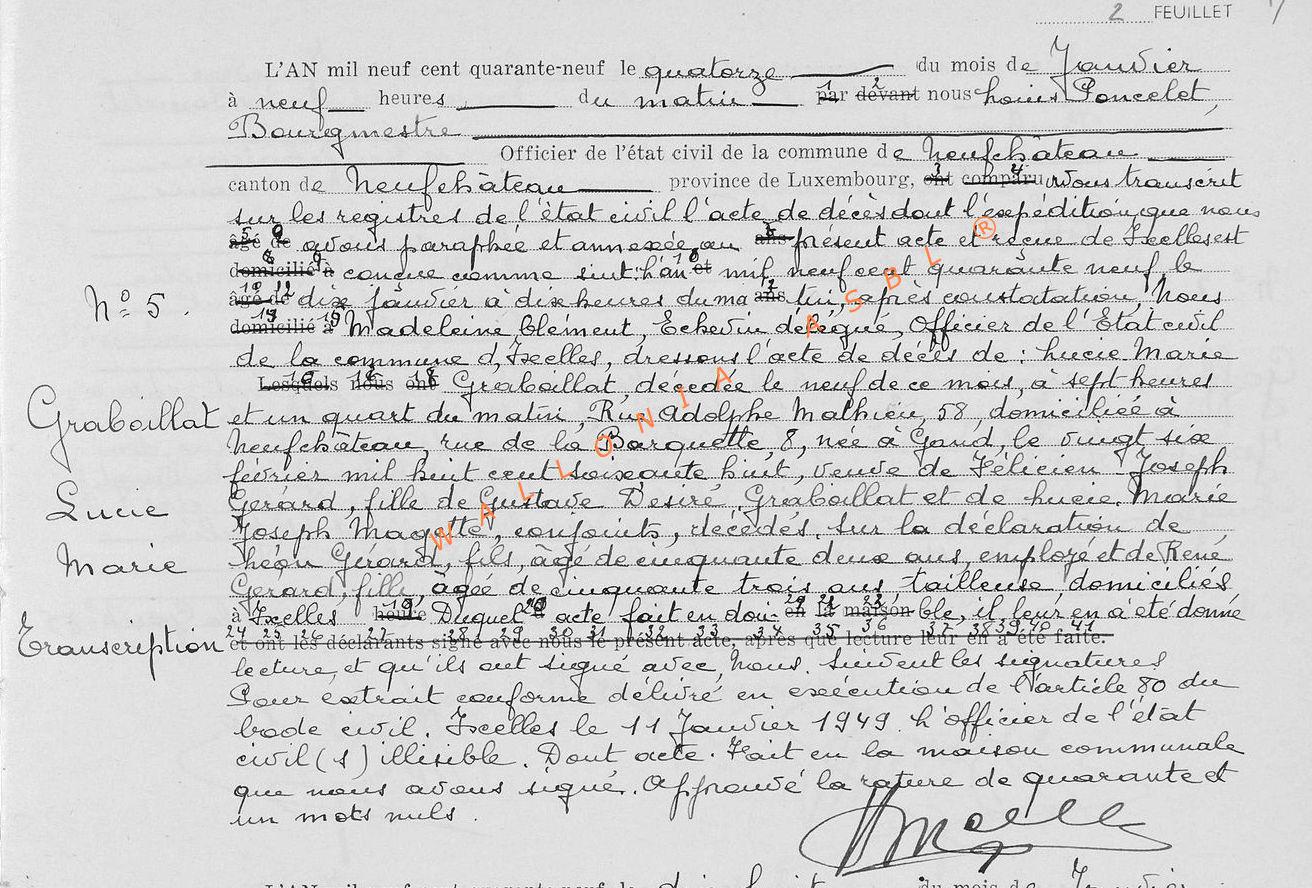 2 FEUILLET
L'AN mil neuf cent quarante-neuf le quatorze du mois de Janvier
à neuf heures du matin par devant nous Louis Poncelet,
Bourgmestre
Officier de l'état civil de la commune de Neufchâteau
canton de Neufchâteau province de Luxembourg, ont comparu Nous transcrit
sur les registres de l'état civil l'acte de décès dont l'expédition, que nous
âgé de avons paraphée et annexée, au ans présent acte et reçue de Ixelles est
domicilié à conçue comme suit: L'an et mil neuf cent quarante neuf le
âgé de dix janvier à dix heures du ma ans tin, après constatation, Nous
domicilié à Madeleine Clément, Echevin délégué, Officier de l'Etat civil
N° 5.
de la commune d'Ixelles, dressons l'acte de décès de : Lucie Marie
Lesquels nous ont Graboillat, décédée le neuf de ce mois, à sept heures
Graboillat
et un quart du matin, Rue Adolphe Mathieu, 58, domiciliée à
Neufchâteau, rue de la Barquette, 8, née à Gand, le vingt six
février mil huit cent soixante huit, veuve de Félicien Joseph
Gerard, fille de Gustave Desiré Graboillat et de Lucie Marie
Lucie
Joseph Magotte, conjoints, décédés. sur la déclaration de
Léon Gérard, fils, âgé de cinquante deux ans, employé et de René
Marie
Gerard, fille, âgée de cinquante trois ans, tailleuse domiciliés
à Ixelles heure Duquel acte fait en dou- en la maison ble, il leur en a été donné
Transcription
et ont les déclarants signé avec nous le présent acte, après que lecture leur en a été faite.
lecture, et qu'ils ont signé avec Nous. Suivent les signatures
Pour extrait conforme délivré en exécution de l'article 80 du
Code civil. Ixelles le 11 Janvier 1949 L'officier de l'état
civil (s) illisible. Dont acte. Fait en la maison communale
que nous avons signé. Approuvé la rature de quarante et
un mots nuls.
WALLONIA ASBL ®
L'AN mil neuf cent quarante-neuf le du mois de